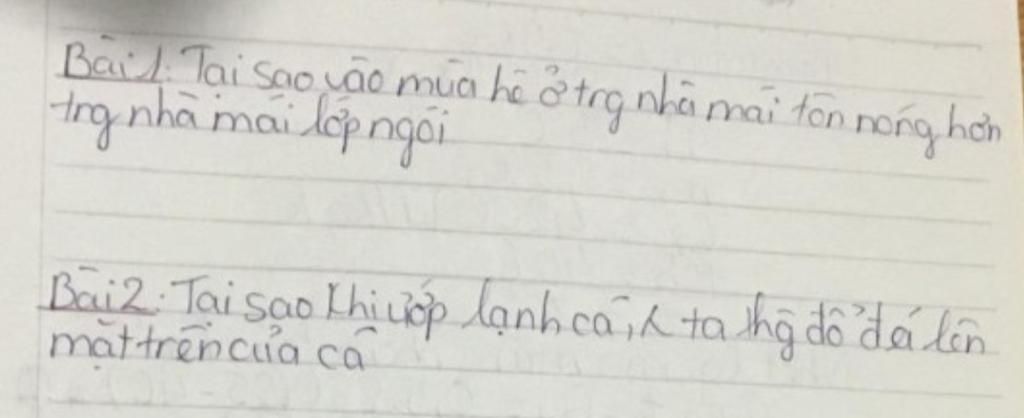 Bài 1: Tại sao vào mùa hè ở trg nhà mái tôn nóng hơn
trg nhà mái lợp ngói
Bài 2: Tại sao khi ướp lạnh cá, ta thg đổ đá lên
mặt trên của cá